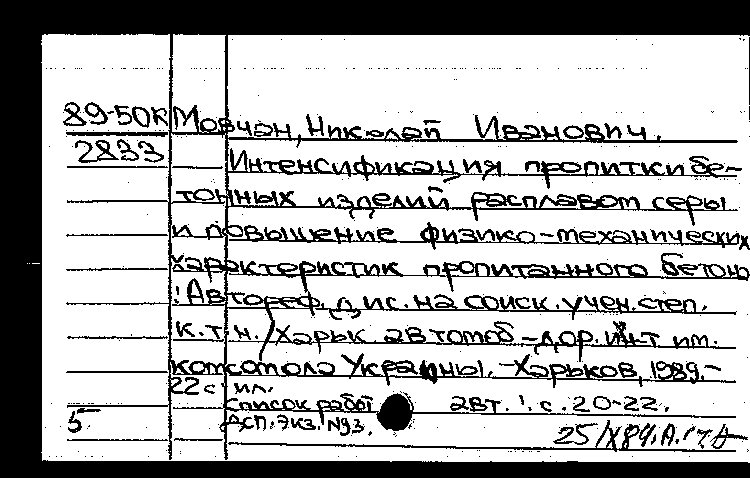 89-50К Мовчан, Николай Иванович.
2833 Интенсификация пропитки бе-
тонных изделий расплавом серы
и повышение физико-механических
характеристик пропитанного бетона
: Автореф. дис. на соиск. учен. степ.
к.т.н. / Харьк. автомоб.-дор. ин-т им.
комсомола Украины. - Харьков, 1989. -
22 с ил.
Список работ авт.: с. 20-22.
5 ДСП. Экз. №93.
25/X 89г.